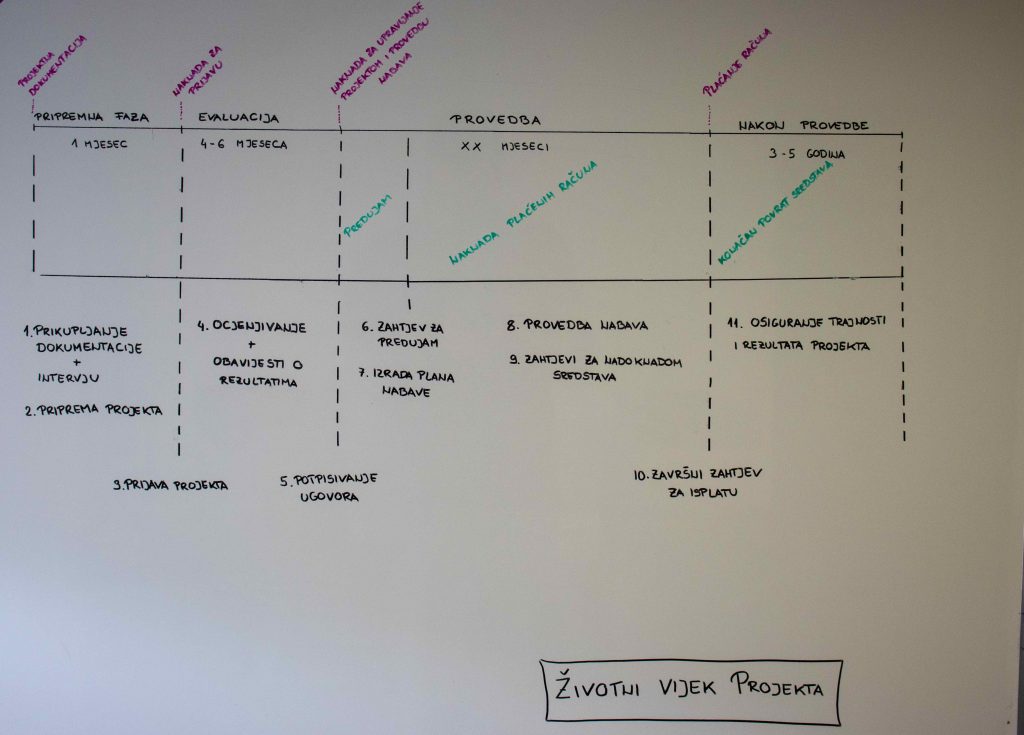 PROJEKTNA
DOKUMENTACIJA
NAKNADA ZA
PRIJAVU
NAKNADA ZA UPRAVLJANJE
PROJEKTOM I PROVEDBU
NABAVA
PLAĆANJE RAČUNA
PRIPREMNA FAZA
EVALUACIJA
PROVEDBA
NAKON PROVEDBE
1 MJESEC
4-6 MJESECA
XX MJESECI
3-5 GODINA
PREDUJAM
NAKNADA PLAĆENIH RAČUNA
KONAČAN POVRAT SREDSTAVA
1. PRIKUPLJANJE
DOKUMENTACIJE
+
INTERVJU
2. PRIPREMA PROJEKTA
3. PRIJAVA PROJEKTA
4. OCJENJIVANJE
+
OBAVIJESTI O
REZULTATIMA
5. POTPISIVANJE
UGOVORA
6. ZAHTJEV ZA
PREDUJAM
7. IZRADA PLANA
NABAVE
8. PROVEDBA NABAVA
9. ZAHTJEVI ZA NADOKNADOM
SREDSTAVA
10. ZAVRŠNI ZAHTJEV
ZA ISPLATU
11. OSIGURANJE TRAJNOSTI
I REZULTATA PROJEKTA
ŽIVOTNI VIJEK PROJEKTA